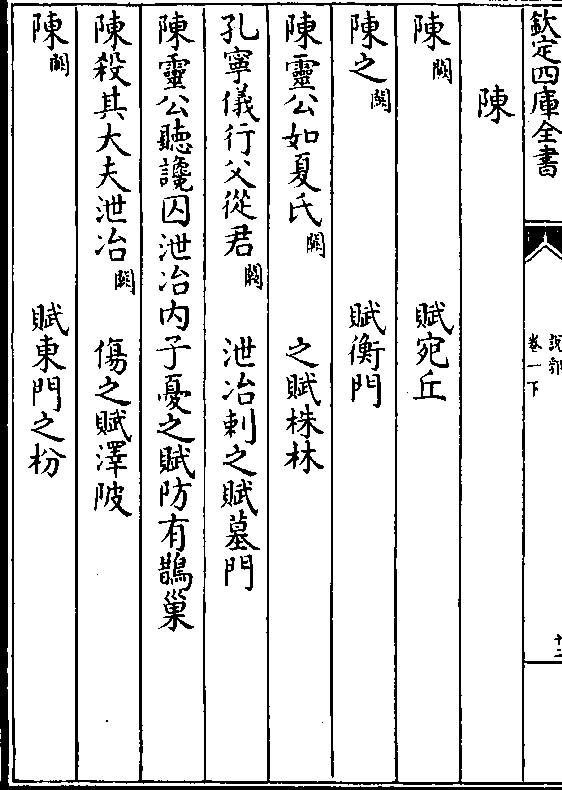 欽定四庫全書
說郛
卷一下
十二
陳
陳闕 賦宛丘
陳之闕 賦衡門
陳靈公如夏氏闕 之賦株林
孔寧儀行父從君闕 泄冶刺之賦墓門
陳靈公聽讒囚泄冶内子憂之賦防有鵲巢
陳殺其大夫泄冶闕 傷之賦澤陂
陳闕 賦東門之枌